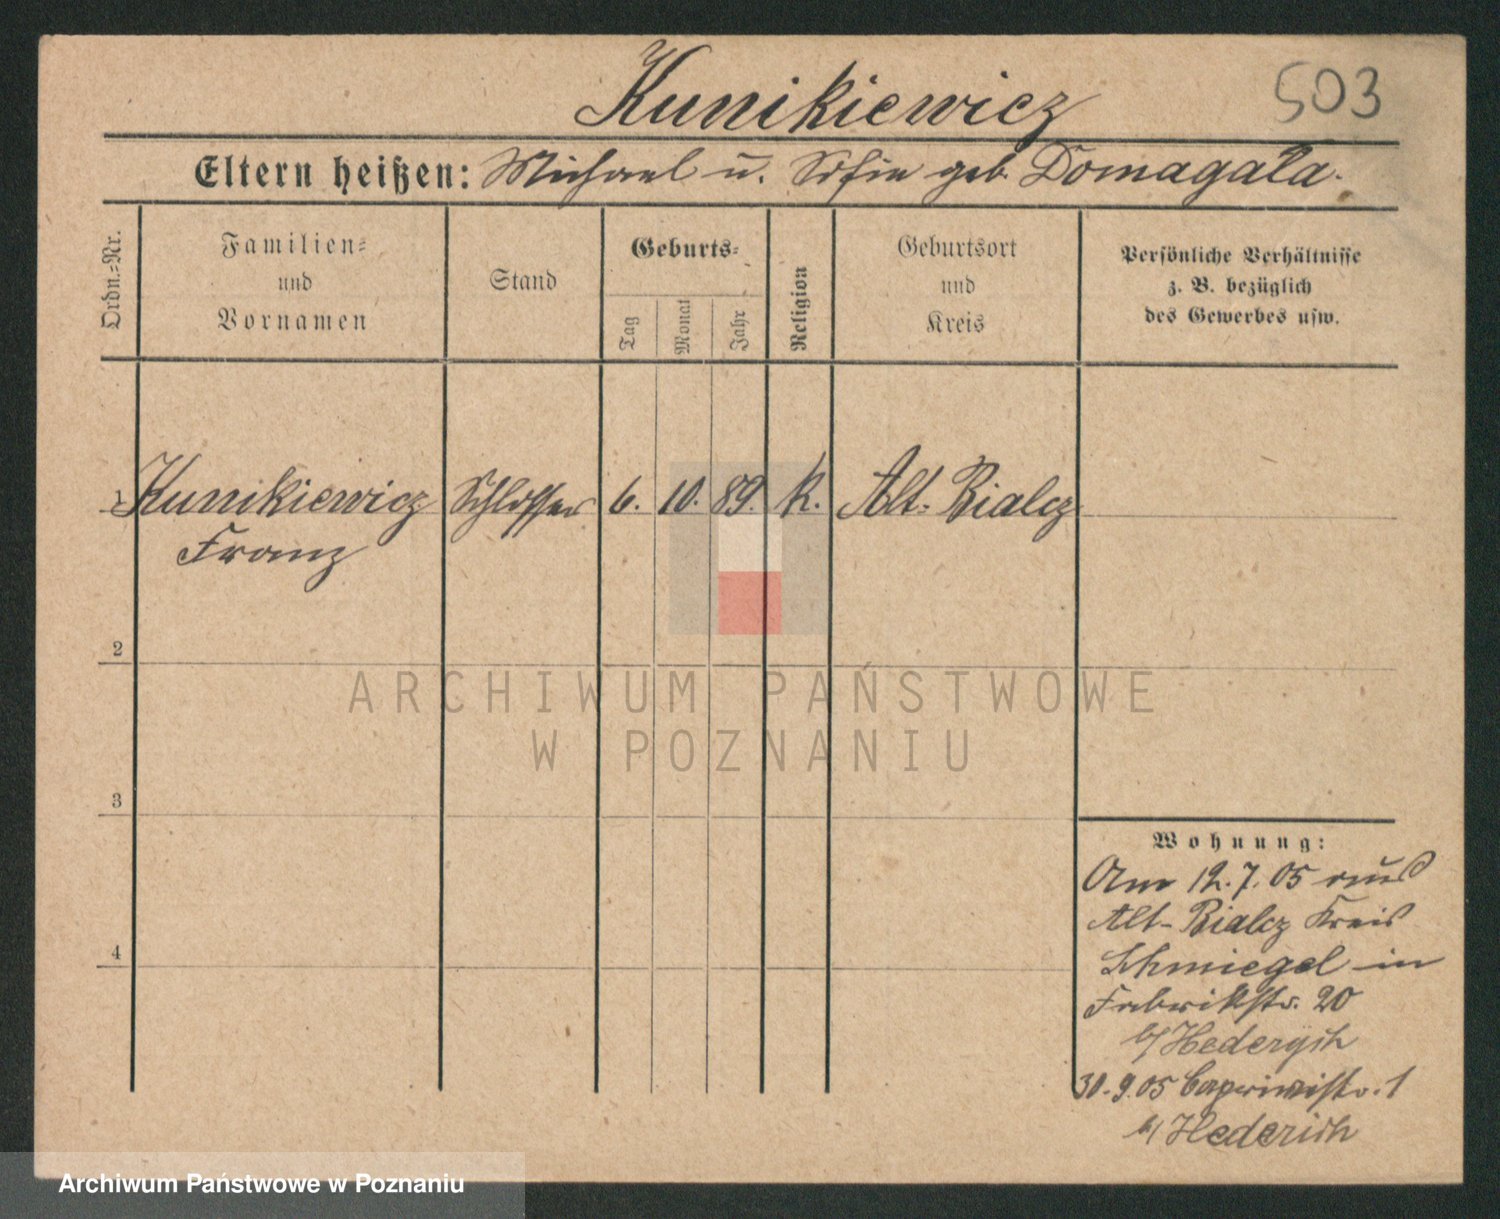 Kunikiewicz
503
Eltern heißen: Michael u. Sofie geb. Domagala.
Ordn.=Nr.
Familien=
und
Vornamen
Stand
Geburts=
Tag
Monat
Jahr
Religion
Geburtsort
und
Kreis
Persönliche Verhältnisse
z. B. bezüglich
des Gewerbes usw.
1 Kunikiewicz Schlosser 6. 10. 89. k. Alt-Bialcz
Franz
2
ARCHIWUM PAŃSTWOWE
W POZNANIU
3
4
Wohnung:
Am 12.7.05 aus
Alt-Bialcz Kreis
Schmiegel in
Fabrikstr. 20
b/ Hederych
30.9.05 Caprivistr. 1
b/ Hederich
Archiwum Państwowe w Poznaniu